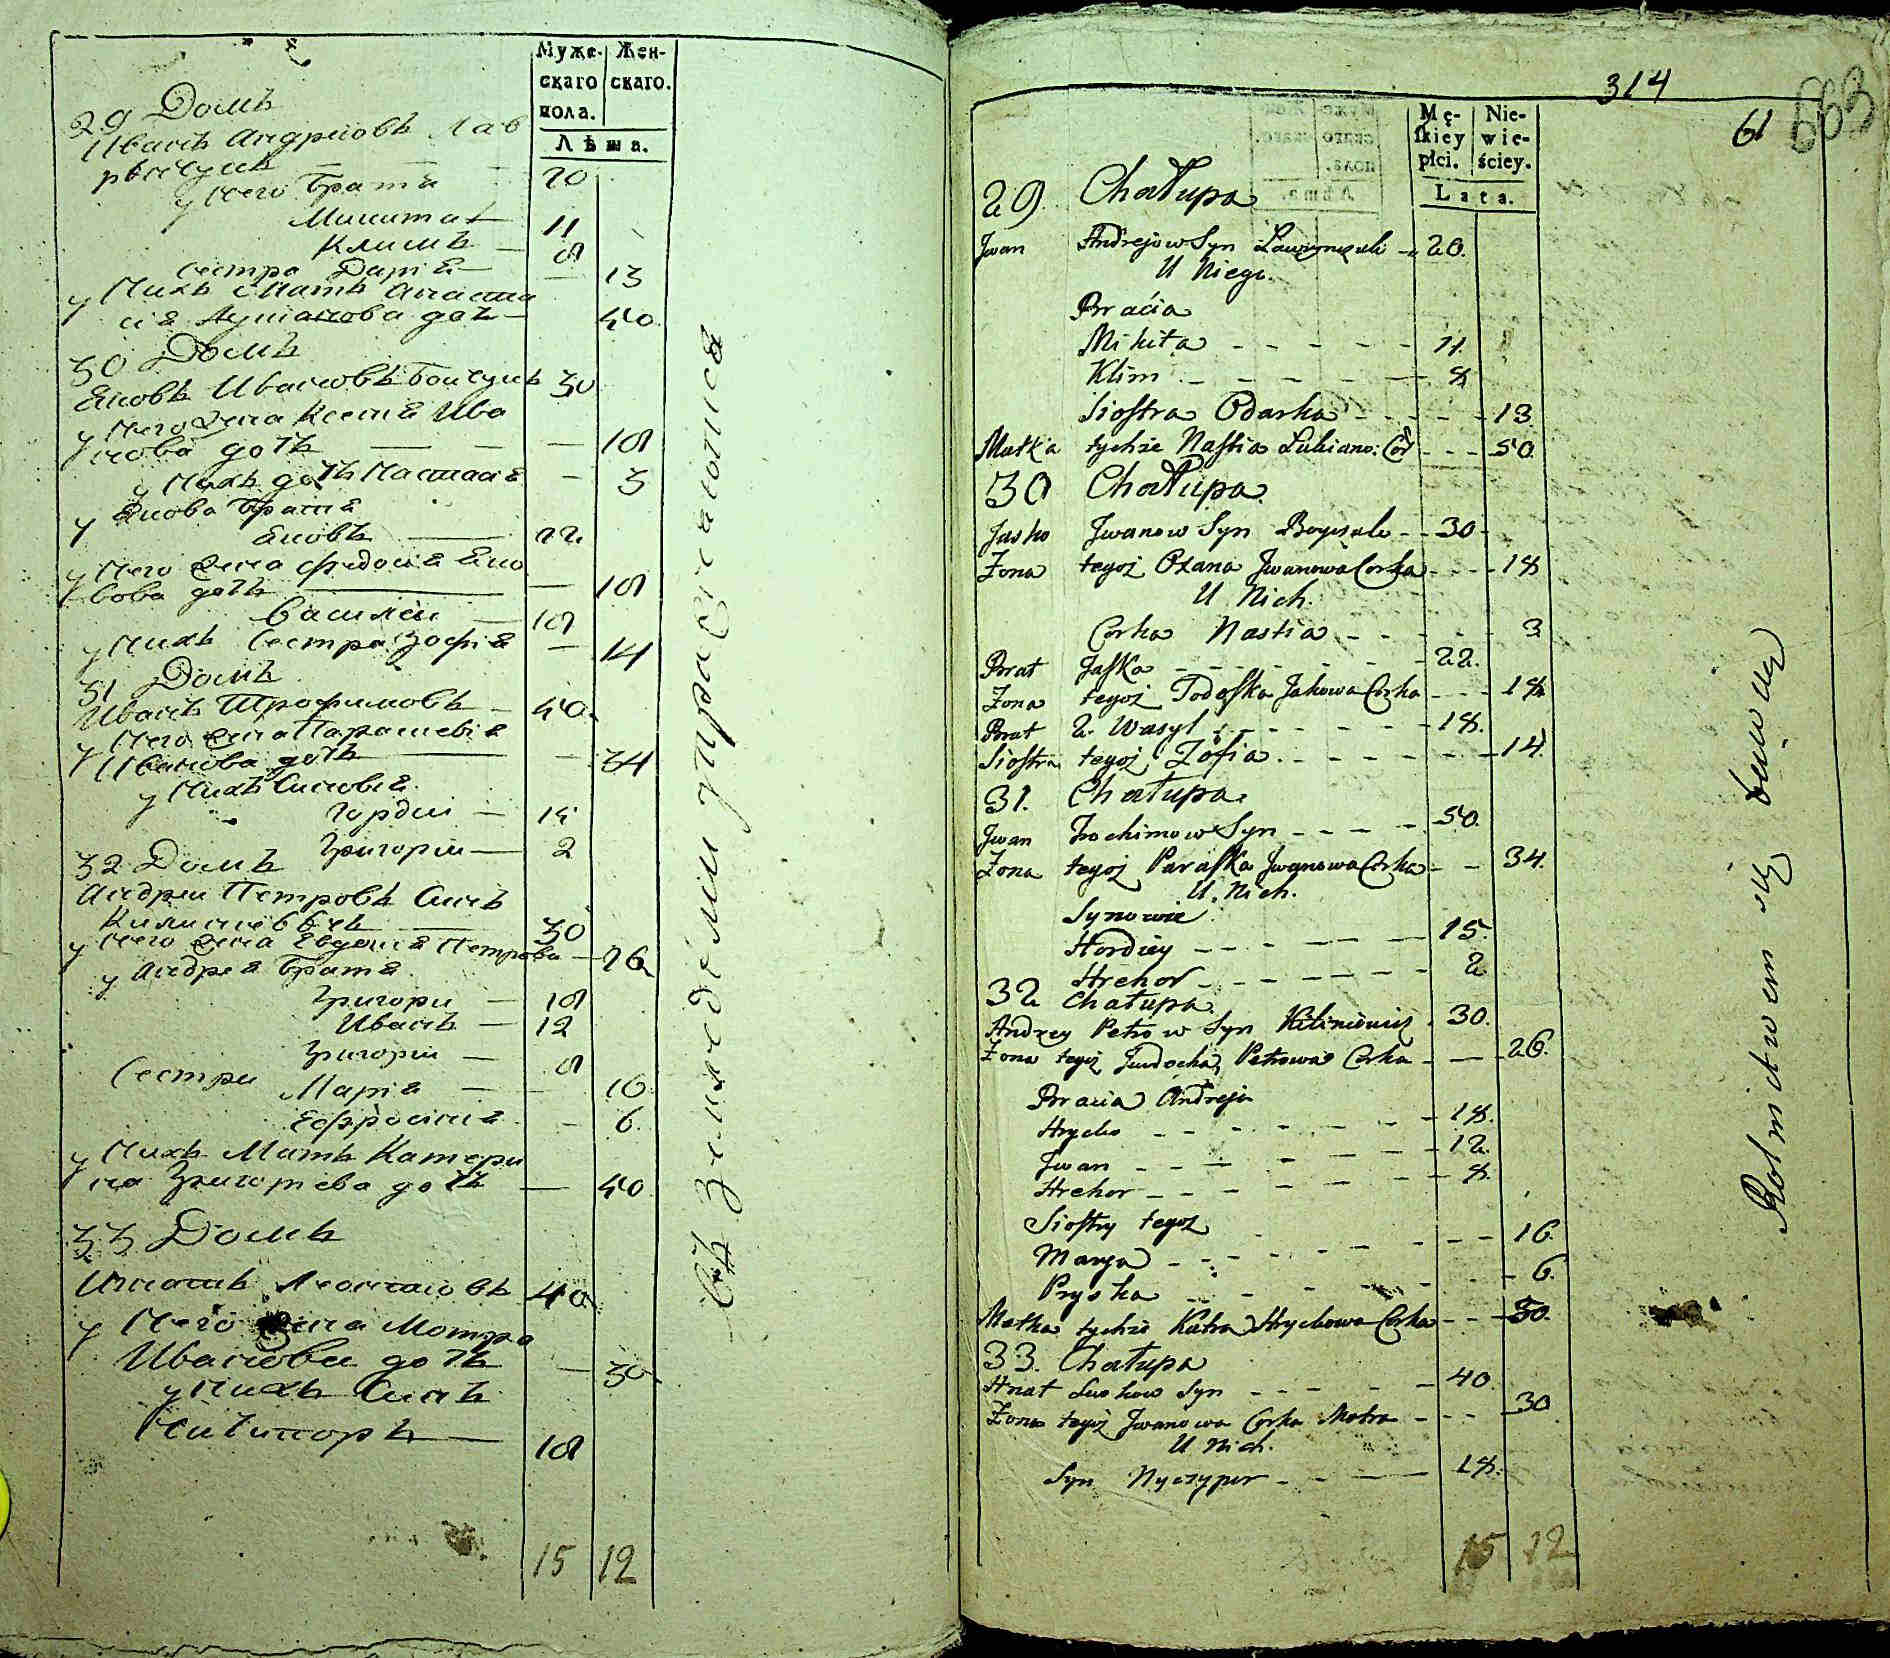 Муже- Жен-
скаго скаго.
пола.
Лѣта.
29 Домъ
Иванъ Андрıовъ Лав
рынчукъ 20
у Него Братя
Микита 11
Климъ 8
Сестра Дарıя 13
у Нихъ Мать Анаста
сıя Лукıанова дочь 50
30 Домъ
Яковъ Ивановъ Бойчукъ 30
у Него Жена Ксенıя Ива
нова дочь 18
у Нихъ дочъ Настасıя 3
у Якова Братя
Яковъ 22
у Него Жена Федосıя Яко
вова дочь 18
Василей 18
у Нихъ Сестра Зофıя 14
31 Домъ
Иванъ Трофимовъ 50
у Него Жена Парашевıя
Иванова дочь 34
у Нихъ Синовıя
Гордıи 15
Григорıи 2
32 Домъ
Андрıи Петровъ Синъ
30
у Него Жена Евдокıя Петрова 26
у Андрıя Братя
Григори 18
Иванъ 12
Григорıи 8
Сестри Марıя 16
Ефросинıя 6
у Нихъ Мать Катери
на Григорıева дочь 50
33 Домъ
Игнатъ Леонтıовъ 40
у Него Жена Мотра
Иванова дочь 30
у Нихъ Синъ
Ничипоръ 18
15 12
въ земледѣлıи упражняются
314
61
663
Mę- Nie-
skiey wie-
płci. ściey.
Lata.
29 Chałupa
Jwan Andrejow Syn Ławrynczuk 20.
U Niego.
Bracia
Mikita 11.
Klim 8
Siostra Odarka 13
Matka tychże Nastia Lukiano: Cór 50.
30 Chałupa.
Jasko Jwanow Syn Boyczuk 30
Żona tegoż Oxana Jwanowa Corka 18
U Nich.
Corka Nastia 3
Brat Jaśka 22.
Żona tegoż Todoska Jakowa Corka 18
Brat 2. Wasyl 18.
Siostra tegoż Zofia 14.
31. Chałupa.
Jwan Trochimow Syn 50.
Żona tegoż Paraska Jwanowa Corka 34.
U. Nich.
Synowie
Hordiey 15.
Hrehor 2
32 Chałupa.
Andrzey Petrow Syn Kilimowicz 30.
Żona tegoż Jewdocha Petrowa Corka 26.
Bracia Andreja
Hryćko 18.
Jwan 12.
Hrehor 8.
Siostry tegoż
Marya 16.
Pryśka 6.
Matka tychże Katra Hryckowa Corka 50.
33. Chałupa
Hnat Lewkow Syn 40
Żona tegoż Jwanowa Corka Motra 30
U Nich.
Syn Nyczypor 18.
15 12
Rolnictwem się bawiący